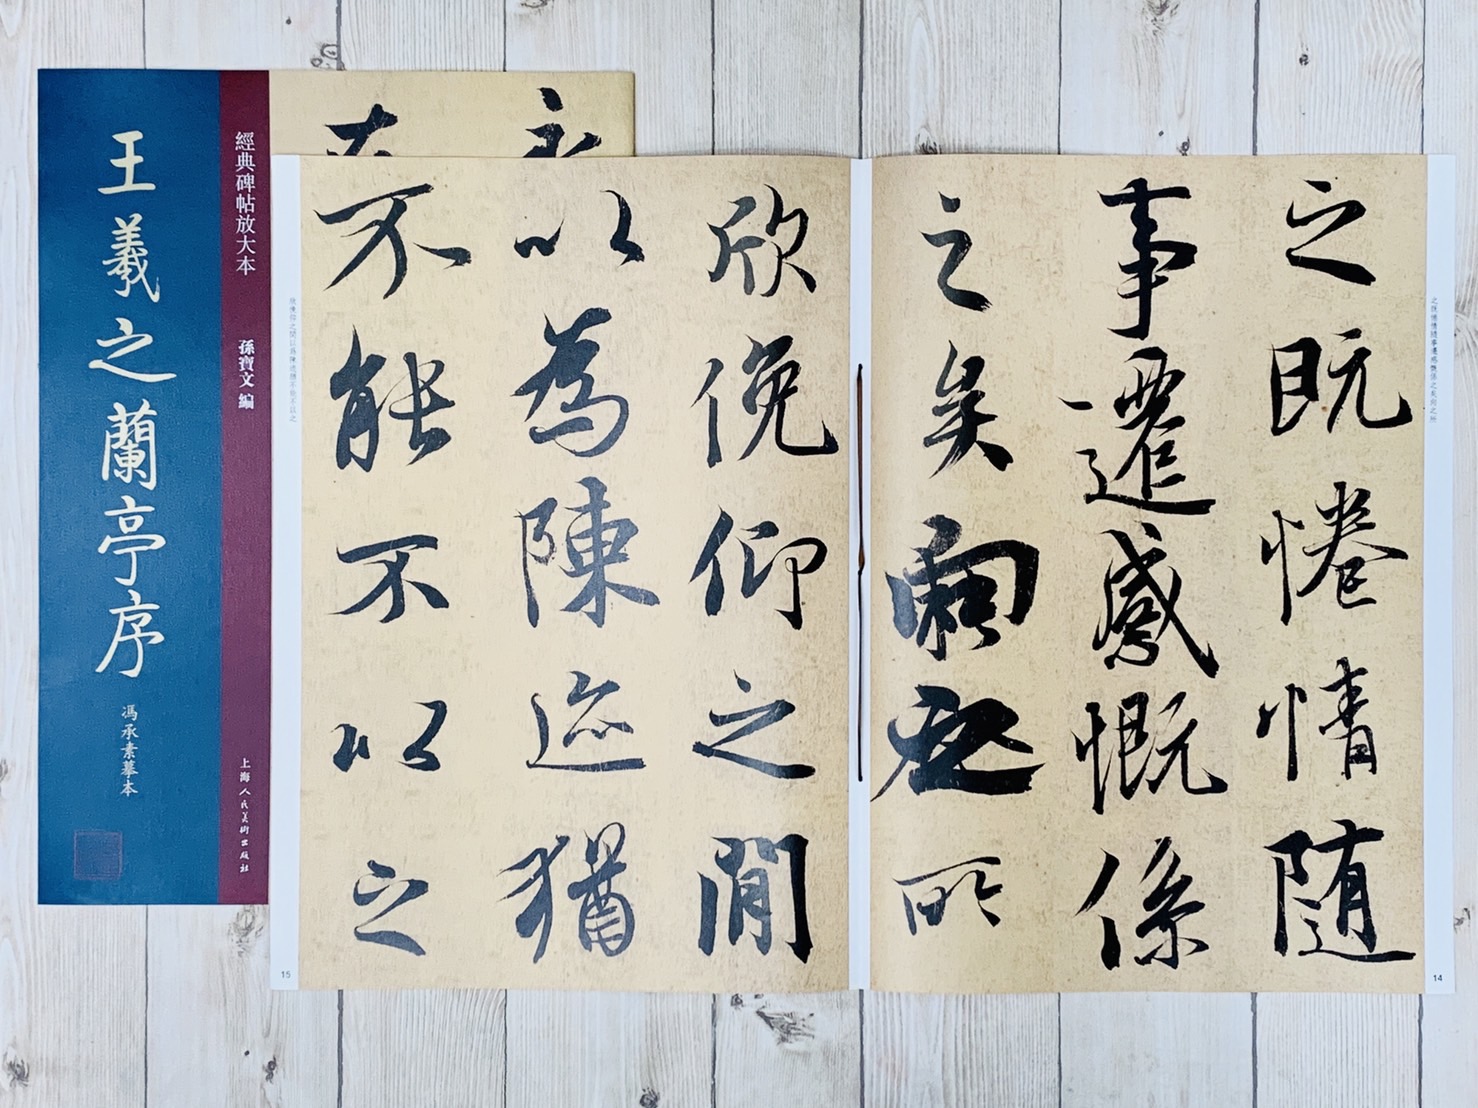 王羲之蘭亭序
馮承素摹本
經典碑帖放大本
孫寶文 編
上海人民美術出版社
之既惓情随事遷感慨係之矣向之所
之既惓情随
事遷感慨係
之矣向之所
14
欣俛仰之閒
以為陳迹猶
不能不以之
欣俛仰之閒以爲陳迹猶不能不以之
15